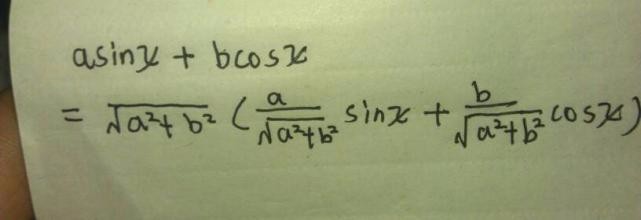 asinx + bcosx
= √a²+b² (a/√a²+b² sinx + b/√a²+b² cosx)